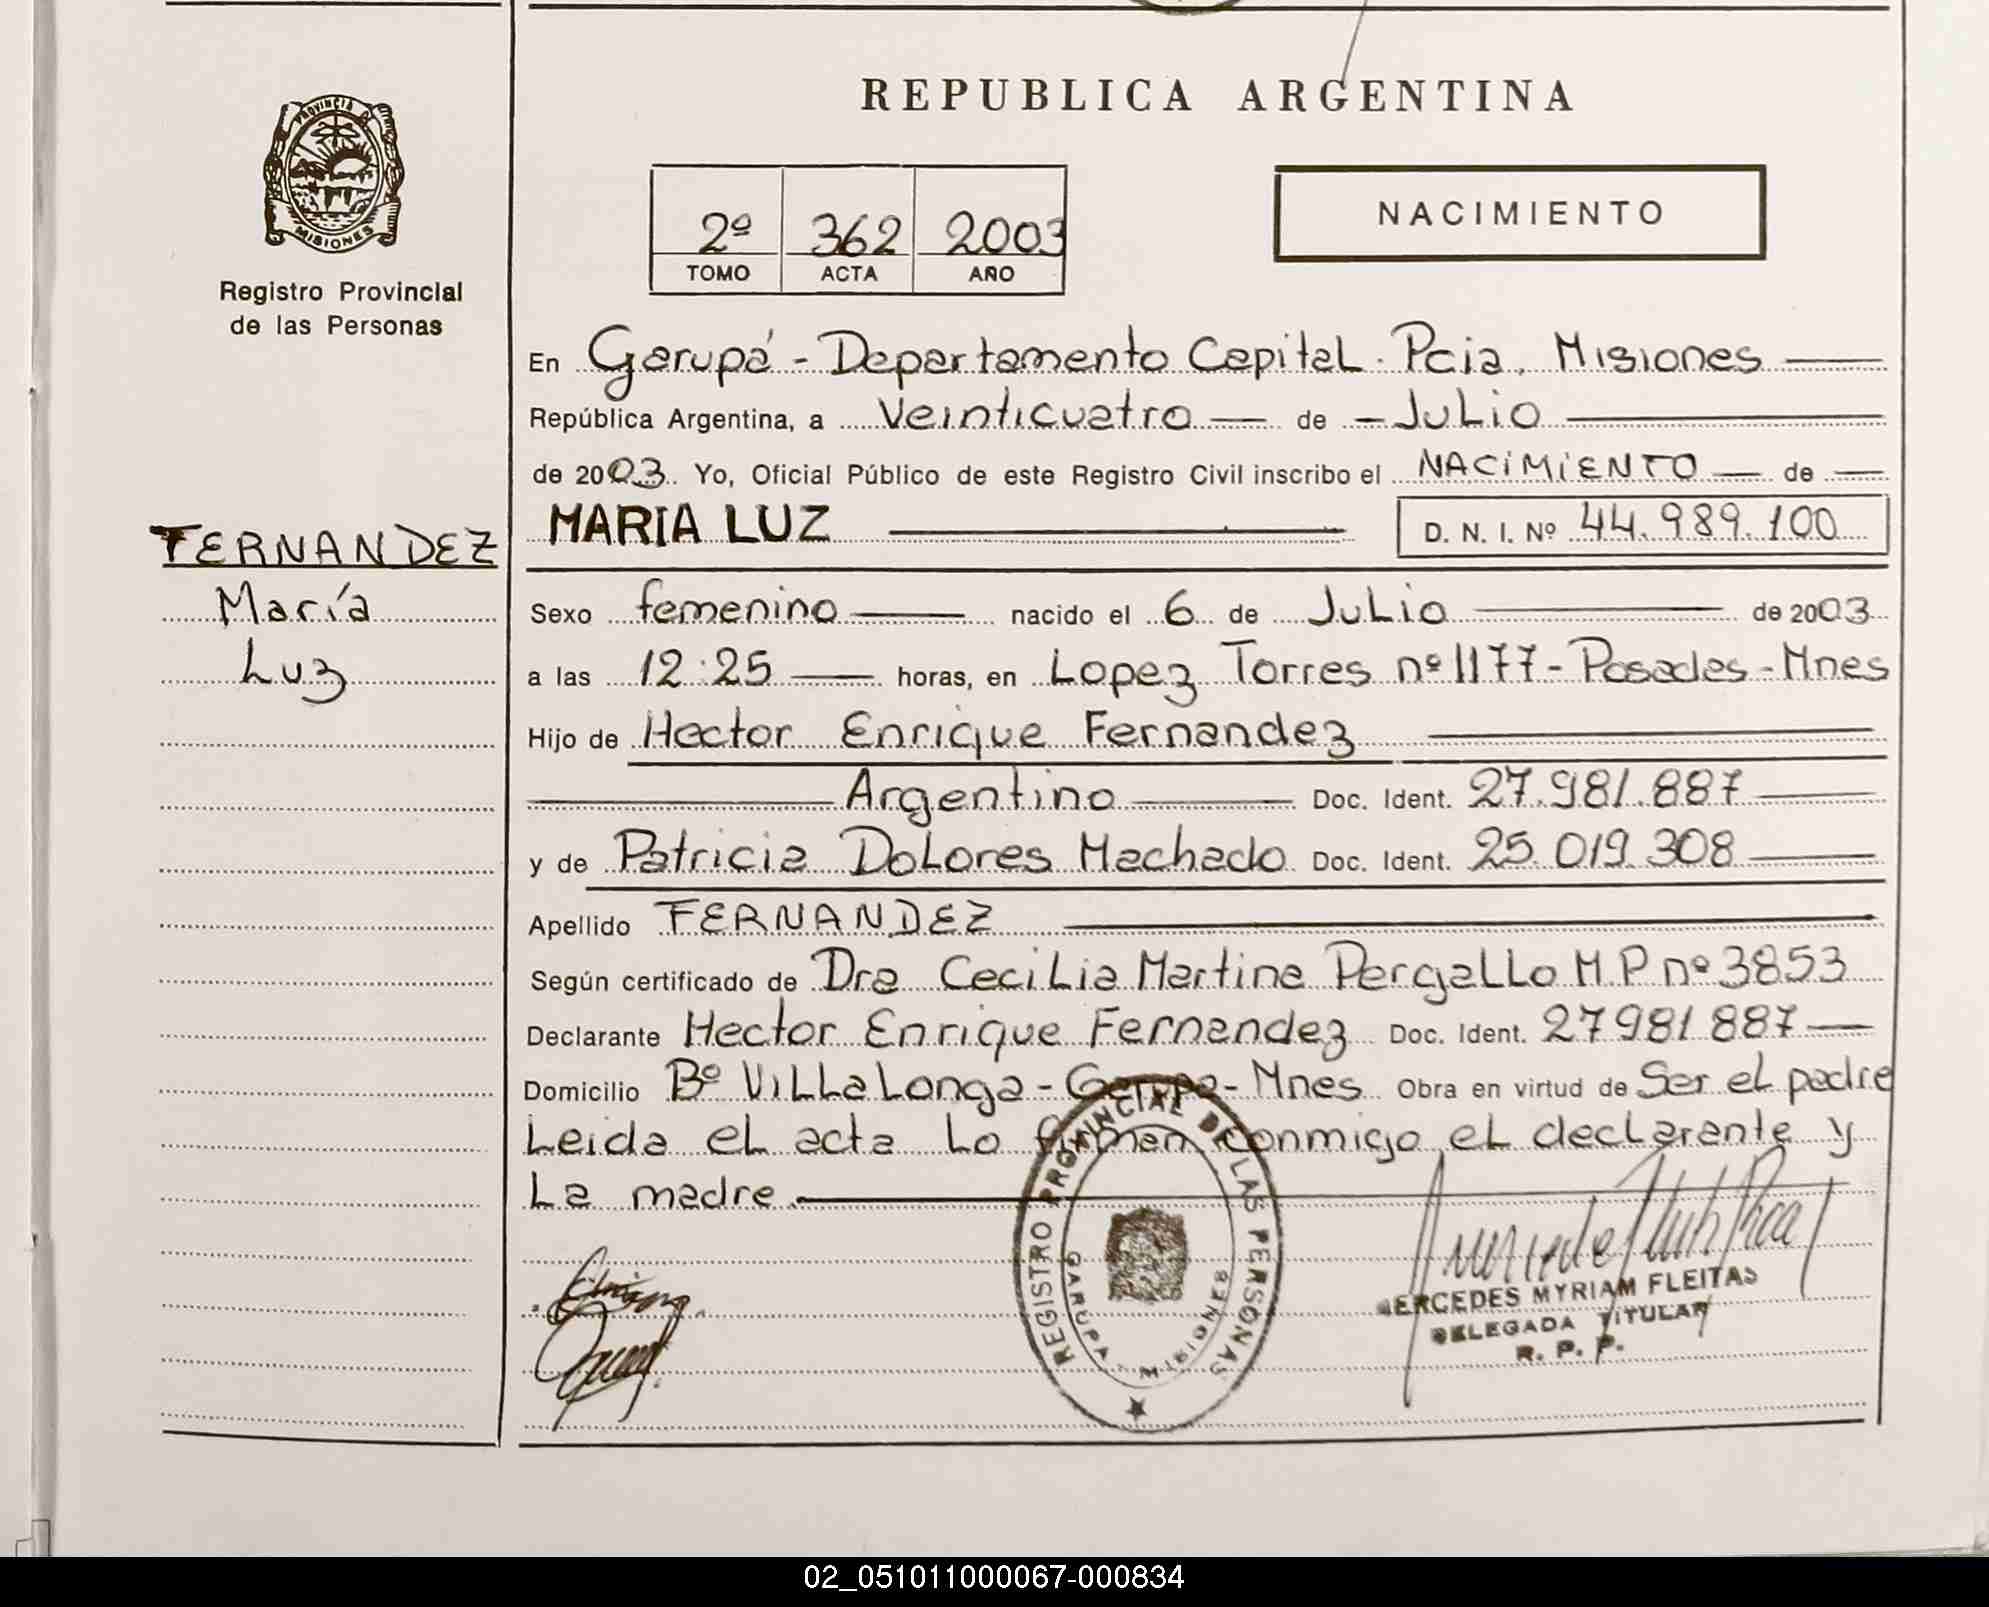 REPUBLICA ARGENTINA
PROVINCIA DE MISIONES
Registro Provincial
de las Personas
2º 362 2003
TOMO ACTA AÑO
NACIMIENTO
En Garupá - Departamento Capital. Pcia. Misiones
República Argentina, a Veinticuatro de Julio
de 2003. Yo, Oficial Público de este Registro Civil inscribo el NACIMIENTO de
FERNANDEZ
María
Luz
MARIA LUZ D. N. I. Nº 44.989.100
Sexo femenino nacido el 6 de Julio de 2003
a las 12:25 horas, en Lopez Torres nº 1177 - Posadas - Mnes
Hijo de Hector Enrique Fernandez
Argentino Doc. Ident. 27.981.887
y de Patricia Dolores Machado Doc. Ident. 25.019.308
Apellido FERNANDEZ
Según certificado de Dra Cecilia Martina Pergallo M.P nº 3853
Declarante Hector Enrique Fernandez Doc. Ident. 27981887
Domicilio Bº Villalonga - Garupa - Mnes Obra en virtud de Ser el padre
Leida el acta lo firman conmigo el declarante y
La madre.
REGISTRO PROVINCIAL DE LAS PERSONAS
GARUPA - MISIONES
MERCEDES MYRIAM FLEITAS
DELEGADA TITULAR
R. P. P.
02_051011000067-000834